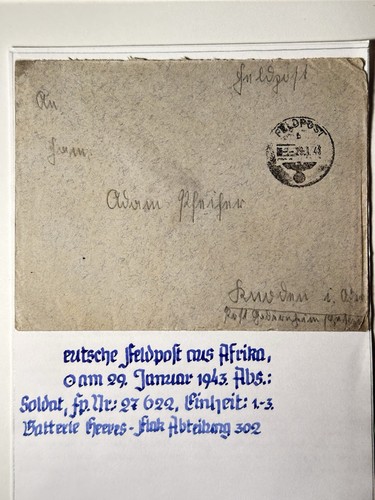 Feldpost
An
FELDPOST
b
29.1.43
Herrn
Adam Pfeifer
Knoden i. Odw
Post
eutsche Feldpost aus Afrika,
⊙ am 29. Januar 1943. Abs.:
Soldat, Fp.Nr.: 27 622, Einheit: 1.-3.
Batterie Heeres-Flak Abteilung 302